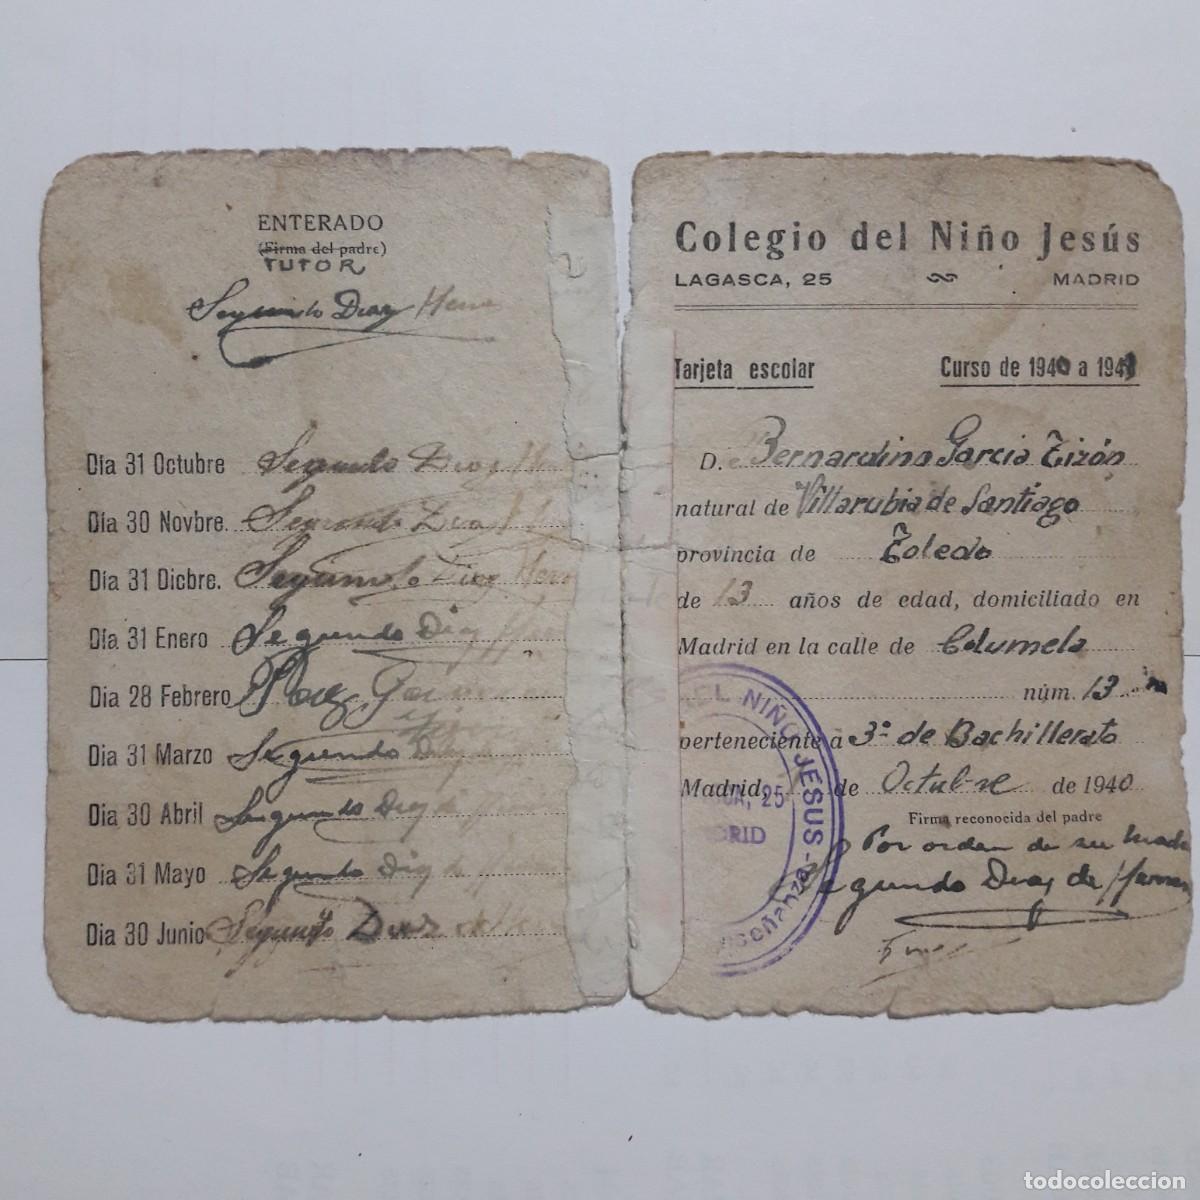 ENTERADO
(Firma del padre)
TUTOR
Segundo Diaz Herna
Día 31 Octubre Segundo Diaz
Día 30 Novbre. Segundo Diaz
Día 31 Dicbre. Segundo Diaz Hern
Día 31 Enero Segundo Diaz
Día 28 Febrero
Día 31 Marzo Segundo Diaz
Día 30 Abril Segundo Diaz de
Día 31 Mayo Segundo Diaz de
Día 30 Junio Segundo Diaz de
Colegio del Niño Jesús
LAGASCA, 25 MADRID
Tarjeta escolar Curso de 1940 a 1941
D. Bernardino Garcia Tizón
natural de Villarubia de Santiago
provincia de Toledo
de 13 años de edad, domiciliado en
Madrid en la calle de Columela
núm. 13
perteneciente a 3º de Bachillerato
Madrid, de Octubre de 1940
Firma reconocida del padre
Por orden de su
Segundo Diaz de
DEL NIÑO JESUS
25
Enseñanza
todocoleccion